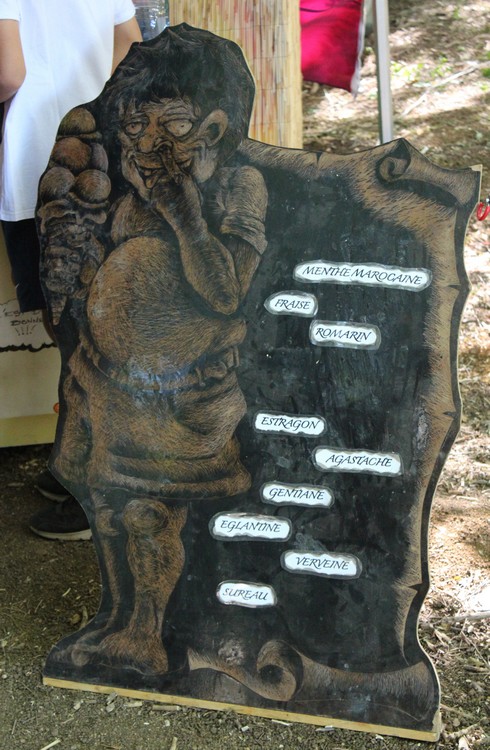 MENTHE MAROCAINE
FRAISE
ROMARIN
ESTRAGON
AGASTACHE
GENTIANE
EGLANTINE
VERVEINE
SUREAU